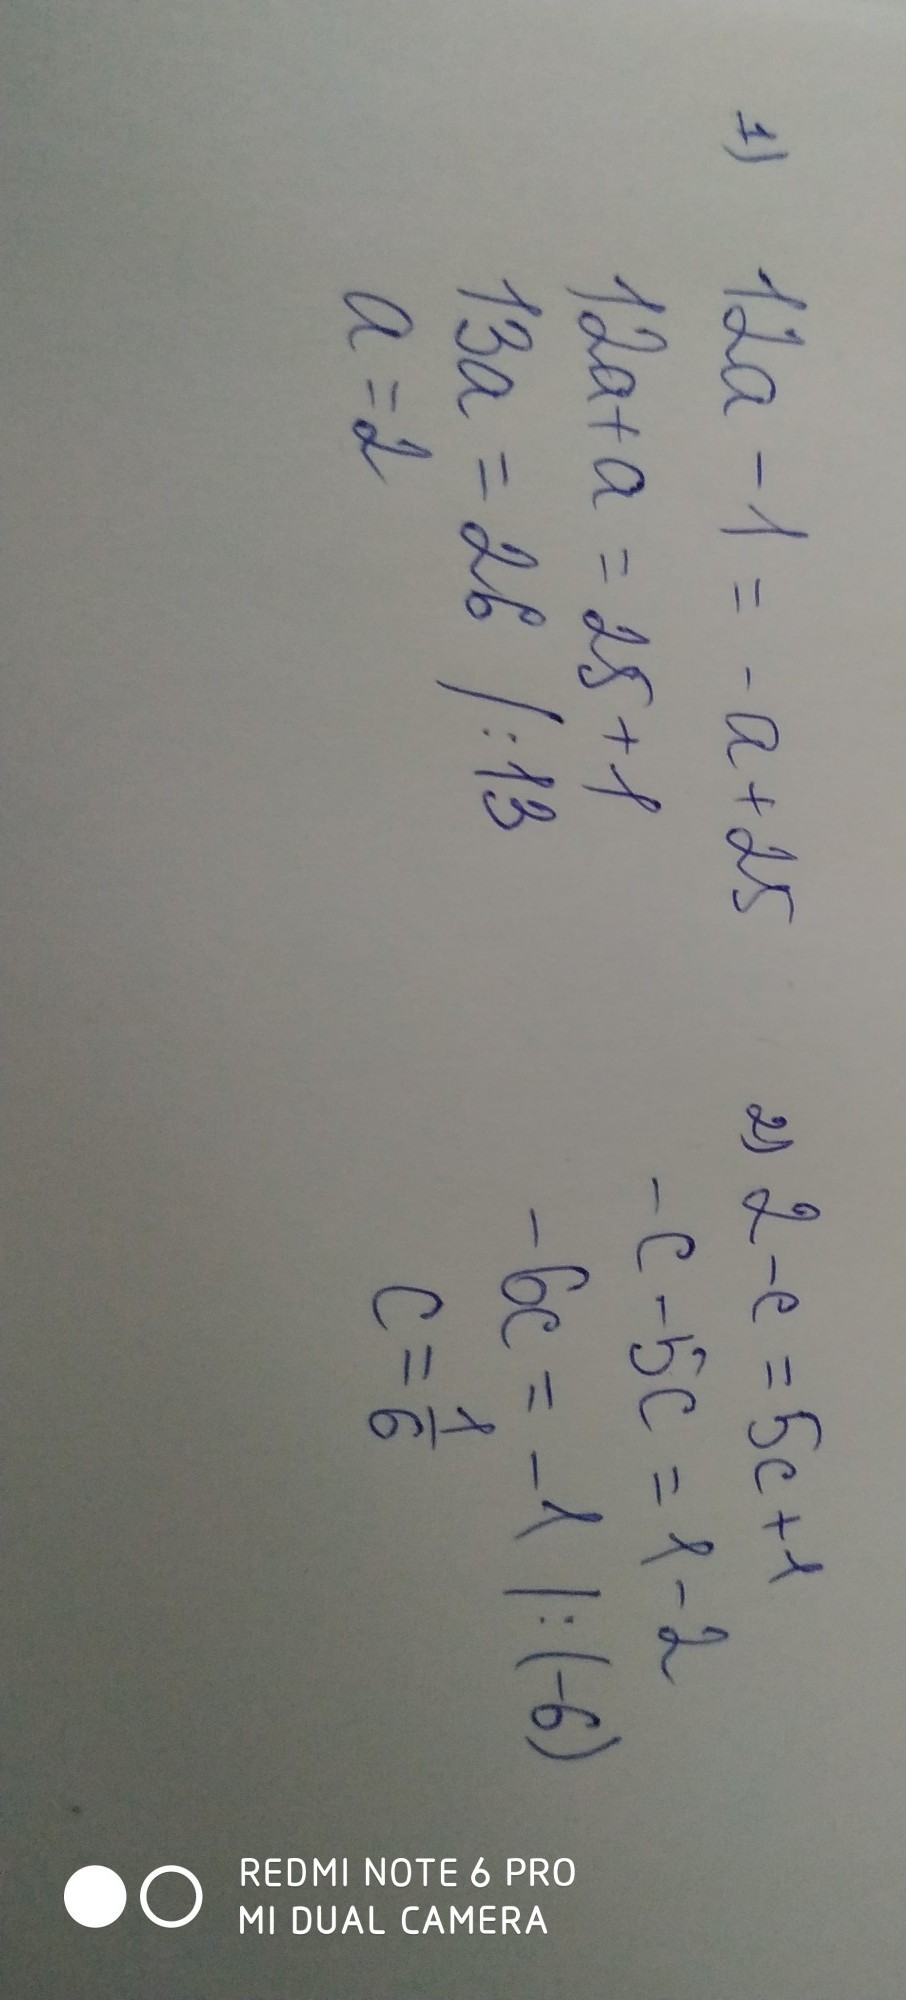 1) 12a - 1 = - a + 25
12a + a = 25 + 1
13a = 26 | : 13
a = 2
2) 2 - c = 5c + 1
- c - 5c = 1 - 2
- 6c = - 1 | : (-6)
c = 1/6
REDMI NOTE 6 PRO
MI DUAL CAMERA